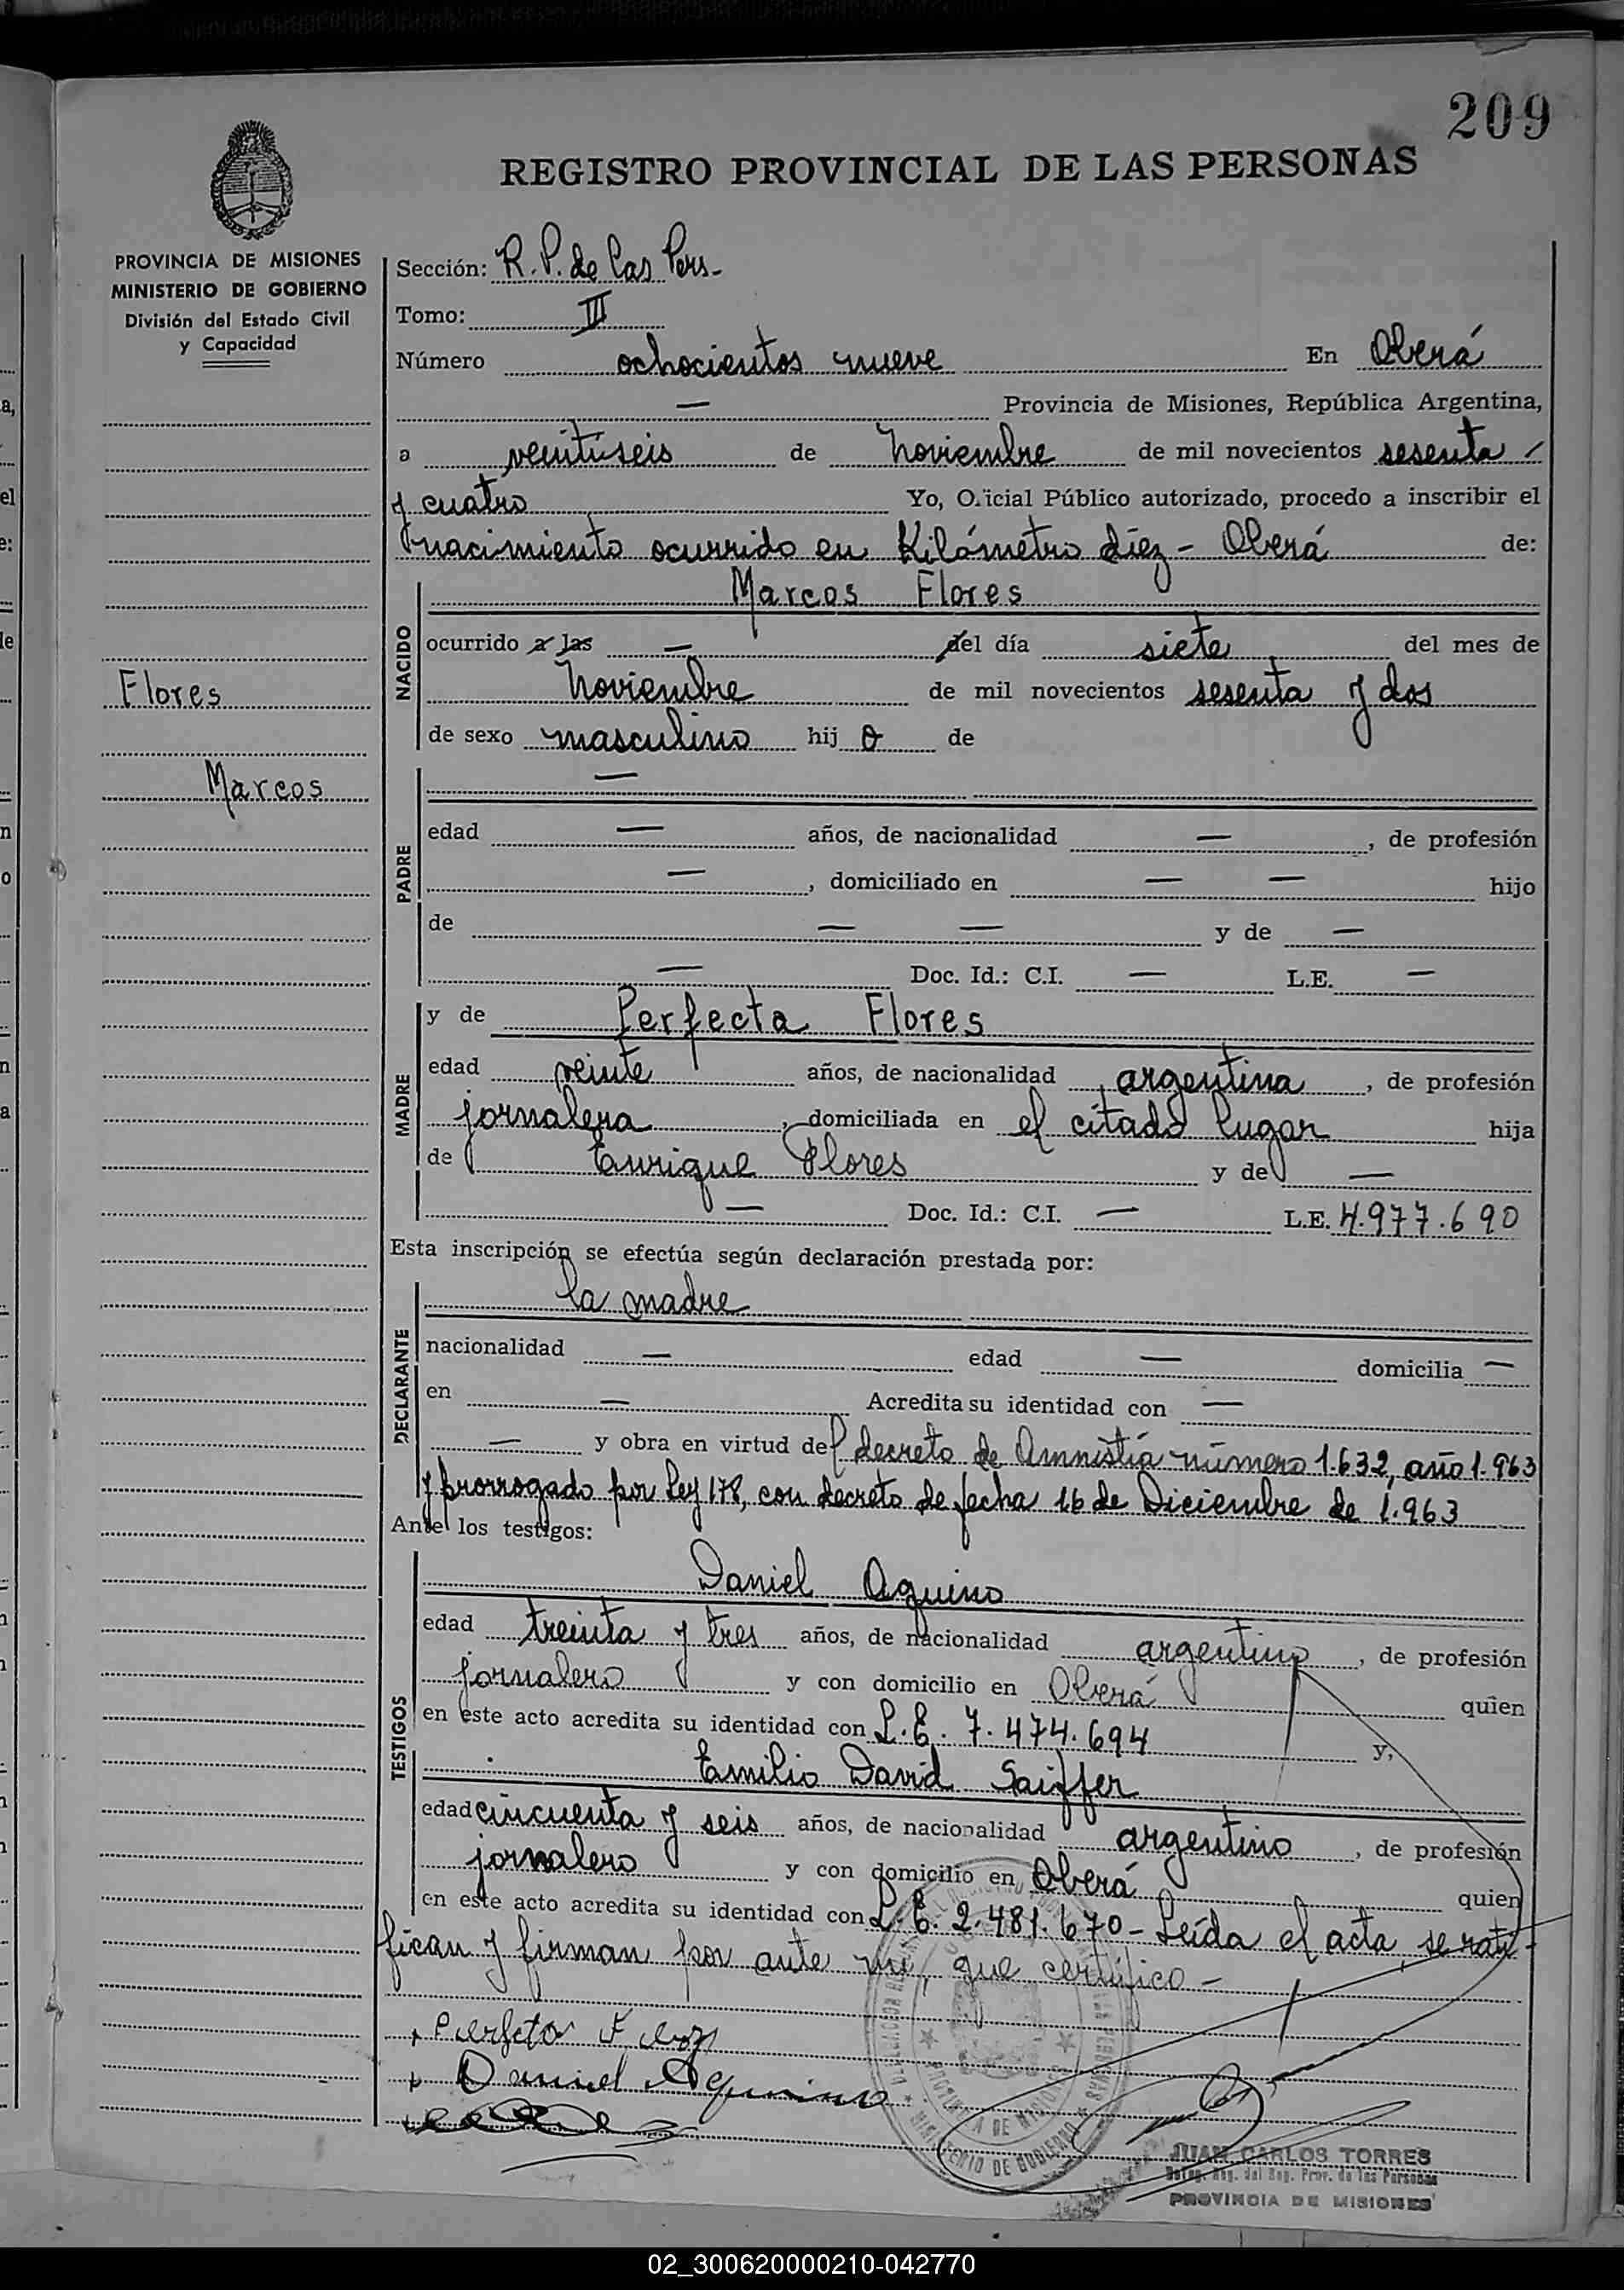 209
REGISTRO PROVINCIAL DE LAS PERSONAS
PROVINCIA DE MISIONES
MINISTERIO DE GOBIERNO
División del Estado Civil
y Capacidad
Flores
Marcos
Sección: R. P. de las Pers-
Tomo: III
Número ochocientos nueve En Oberá
— Provincia de Misiones, República Argentina,
a veintiseis de Noviembre de mil novecientos sesenta
y cuatro Yo, Oficial Público autorizado, procedo a inscribir el
nacimiento ocurrido en Kilómetro diez - Oberá de:
NACIDO
Marcos Flores
ocurrido a las — del día siete del mes de
Noviembre de mil novecientos sesenta y dos
de sexo masculino hij o de
PADRE
—
edad — años, de nacionalidad — , de profesión
— , domiciliado en — — hijo
de — — y de —
— Doc. Id.: C.I. — L.E. —
MADRE
y de Perfecta Flores
edad veinte años, de nacionalidad argentina , de profesión
jornalera , domiciliada en el citado lugar hija
de Enrique Flores y de —
— Doc. Id.: C.I. — L.E. 4.977.690
Esta inscripción se efectúa según declaración prestada por:
DECLARANTE
la madre
nacionalidad — edad — domicilia —
en — Acredita su identidad con —
— y obra en virtud del decreto de Amnistía número 1.632, año 1.963
y prorrogado por Ley 178, con decreto de fecha 16 de Diciembre de 1.963
Ante los testigos:
TESTIGOS
Daniel Aquino
edad treinta y tres años, de nacionalidad argentino , de profesión
jornalero y con domicilio en Oberá quien
en este acto acredita su identidad con L.E. 7.474.694 y,
Emilio David Saiffer
edad cincuenta y seis años, de nacionalidad argentino , de profesión
jornalero y con domicilio en Oberá quien
en este acto acredita su identidad con L.E. 2.481.670- Leída el acta, se rati-
fican y firman por ante mí, que certifico -
Daniel Aquino
MINISTERIO DE GOBIERNO
PROVINCIA DE MISIONES
JUAN CARLOS TORRES
Reg. Prov. de las Personas
PROVINCIA DE MISIONES
02_300620000210-042770